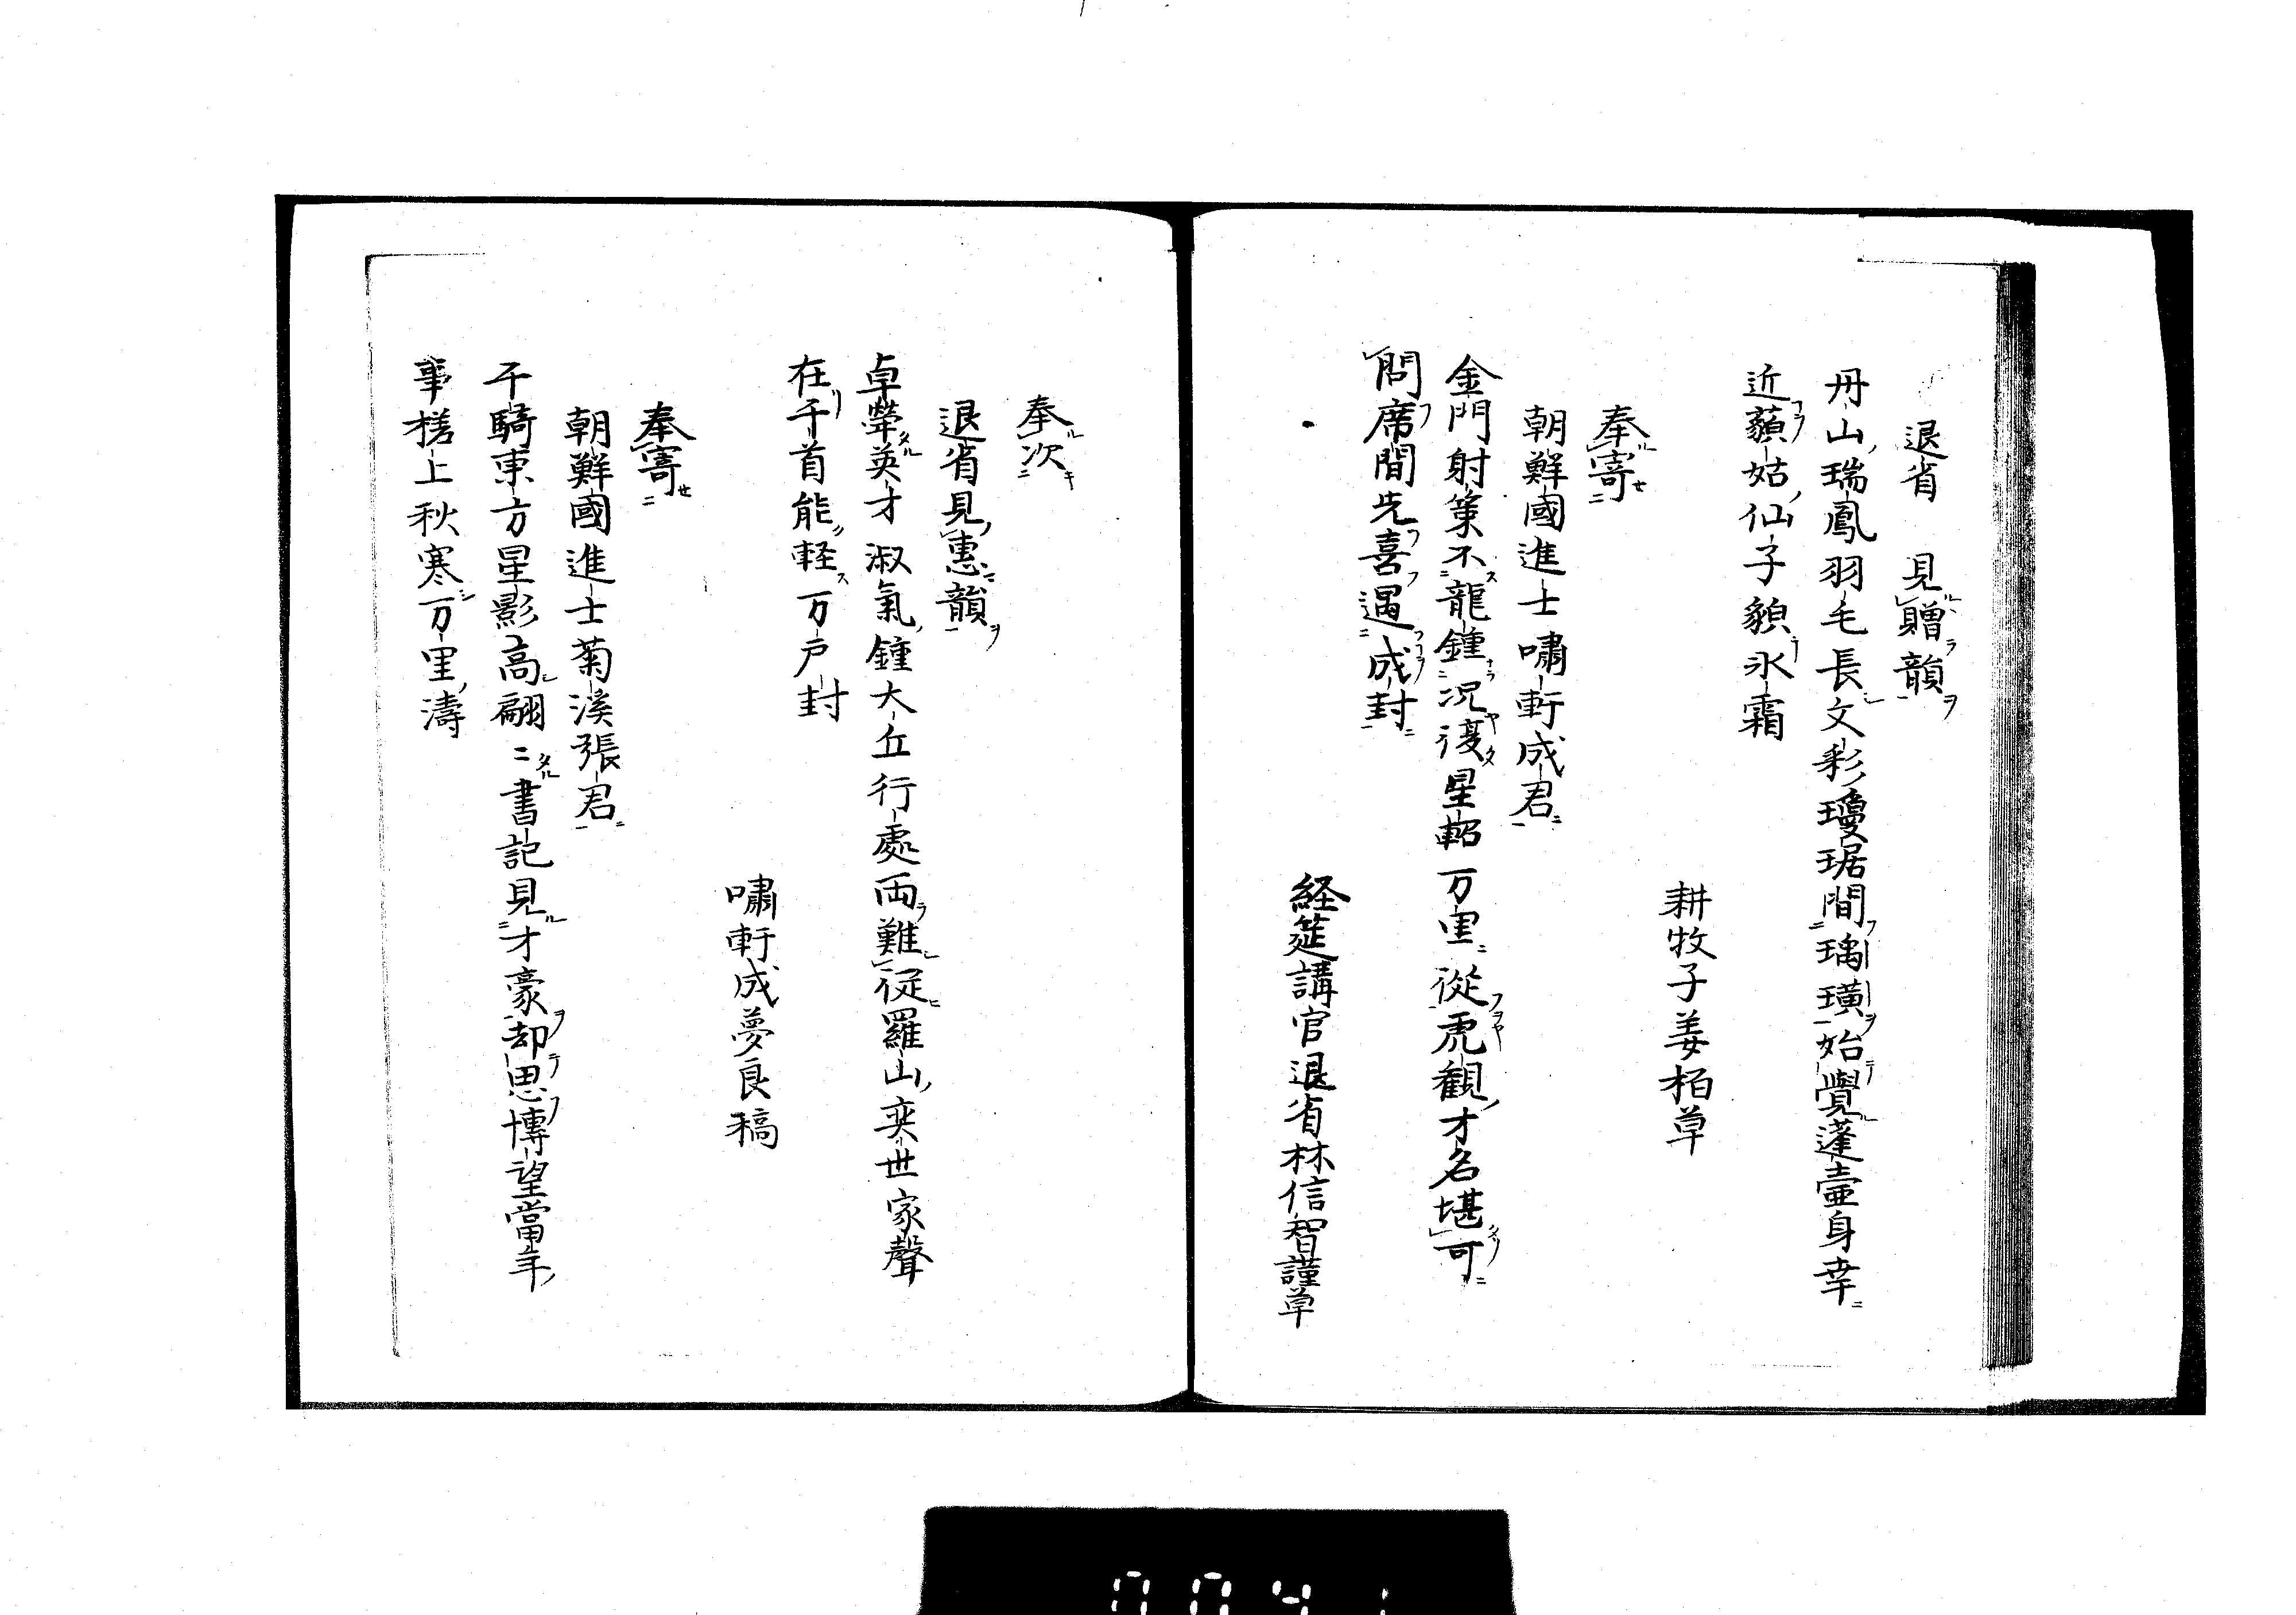 退省 見贈韻
丹山瑞鳳羽毛長文彩瓊琚間瑀璜始覺蓬壺身幸
近藐姑仙子貌氷霜
耕牧子姜栢草
奉寄
朝鮮國進士嘯軒成君
金門射策不龍鍾況復星軺万里從虎観才名堪可
問席間先喜遇成封
経筵講官退省林信智謹草
奉次
退省見惠韻
卓犖英才淑氣鍾大丘行處両難從羅山奕世家聲
在千首能軽万戸封
嘯軒成夢良稿
奉寄
朝鮮國進士菊溪張君
千騎東方星影高翩〻書記見才豪却思博望當年
事槎上秋寒万里濤
0041